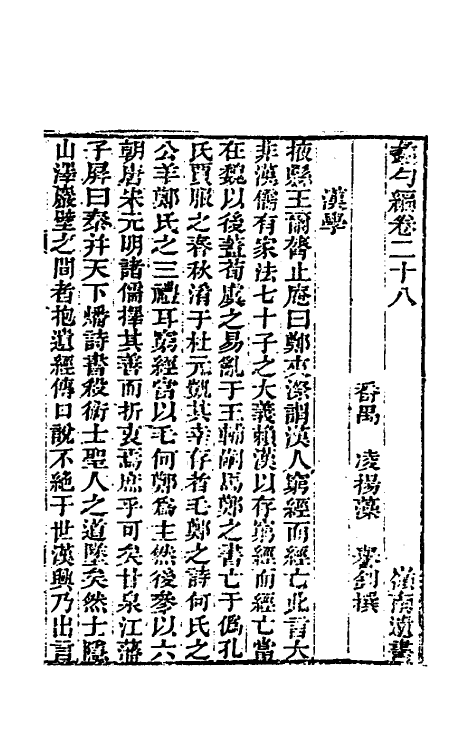 蠡勺編卷二十八 嶺南遺書
番禺 凌揚藻 譽釗撰
漢學
掖縣王爾膂止庵曰鄭夾漈謂漢人窮經而經亡此言大
非漢儒有家法七十子之大義賴漢以存窮經而經亡當
在魏以後蓋荀虞之易亂于王輔嗣馬鄭之書亡于僞孔
氏賈服之春秋淆于杜元凱其幸存者毛鄭之詩何氏之
公羊鄭氏之三禮耳窮經當以毛何鄭爲主然後參以六
朝唐宋元明諸儒擇其善而折衷焉庶乎可矣甘泉江藩
子屏曰秦并天下燔詩書殺術士聖人之道墜矣然士隱
山澤巖壁之間者抱遺經傳口說不絕于世漢興乃出言